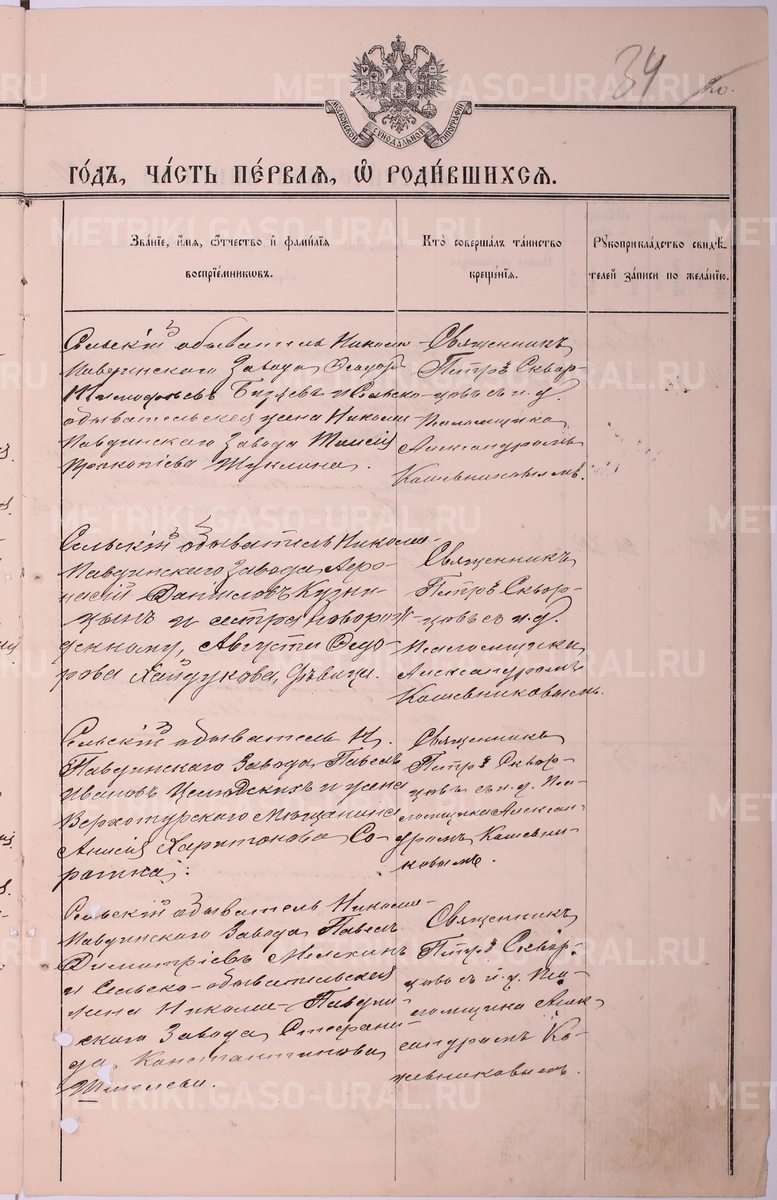 34
20.
МОСКОВСКОЙ СѴНОДАЛЬНОЙ ТИПОГРАФІИ
ГО́ДЪ, ЧА́СТЬ ПЕ́РВАѦ, Ѡ҆ РОДИ́ВШИХСѦ.
Зва́ніе, и҆́мѧ, ѻ҆́тчество и҆ фами́лїѧ
воспрїе́мникѡвъ.
Кто̀ соверша́лъ та́инство
креще́нїѧ.
Рꙋкоприкла́дство свидѣ́-
телей за́писи по жела́нїю.
Сельскій обыватель Николае-
Павдинскаго Завода Ѳеодоръ
Тимофѣевъ и Сельско-
обывательская жена Николае-
Павдинскаго Завода Таисія
Прокопіева Шуклина.
Священникъ
Петръ Сквор-
цовъ съ и. д.
Псаломщика
Александромъ
Кожевниковымъ.
Сельскій обыватель Николае-
Павдинскаго Завода
Даніиловъ Кузни-
цынъ и сестра новорож-
денному, Августа Ѳедо-
рова Хайдукова, дѣвица.
Священникъ
Петръ Сквор-
цовъ съ и. д.
Псаломщика
Александромъ
Кожевниковымъ.
Сельскій обыватель Н.
Павдинскаго Завода Павелъ
Ивановъ и жена
Верхотурскаго Мѣщанина
Анисія Харитонова Со-
рокина.
Священникъ
Петръ Сквор-
цовъ съ и. д. Пса-
ломщика Алексан-
дромъ Кожевни-
ковымъ.
Сельскій обыватель Николае-
Павдинскаго Завода Павелъ
Димитріевъ Мелкинъ
и Сельско-обывательская
жена Николае-Павдин-
скаго Завода Стефани-
да Константинова
Шмелева.
Священникъ
Петръ Сквор-
цовъ съ и. д. Пса-
ломщика Алек-
сандромъ Ко-
жевниковымъ.
METRIKI.GASO-URAL.RU